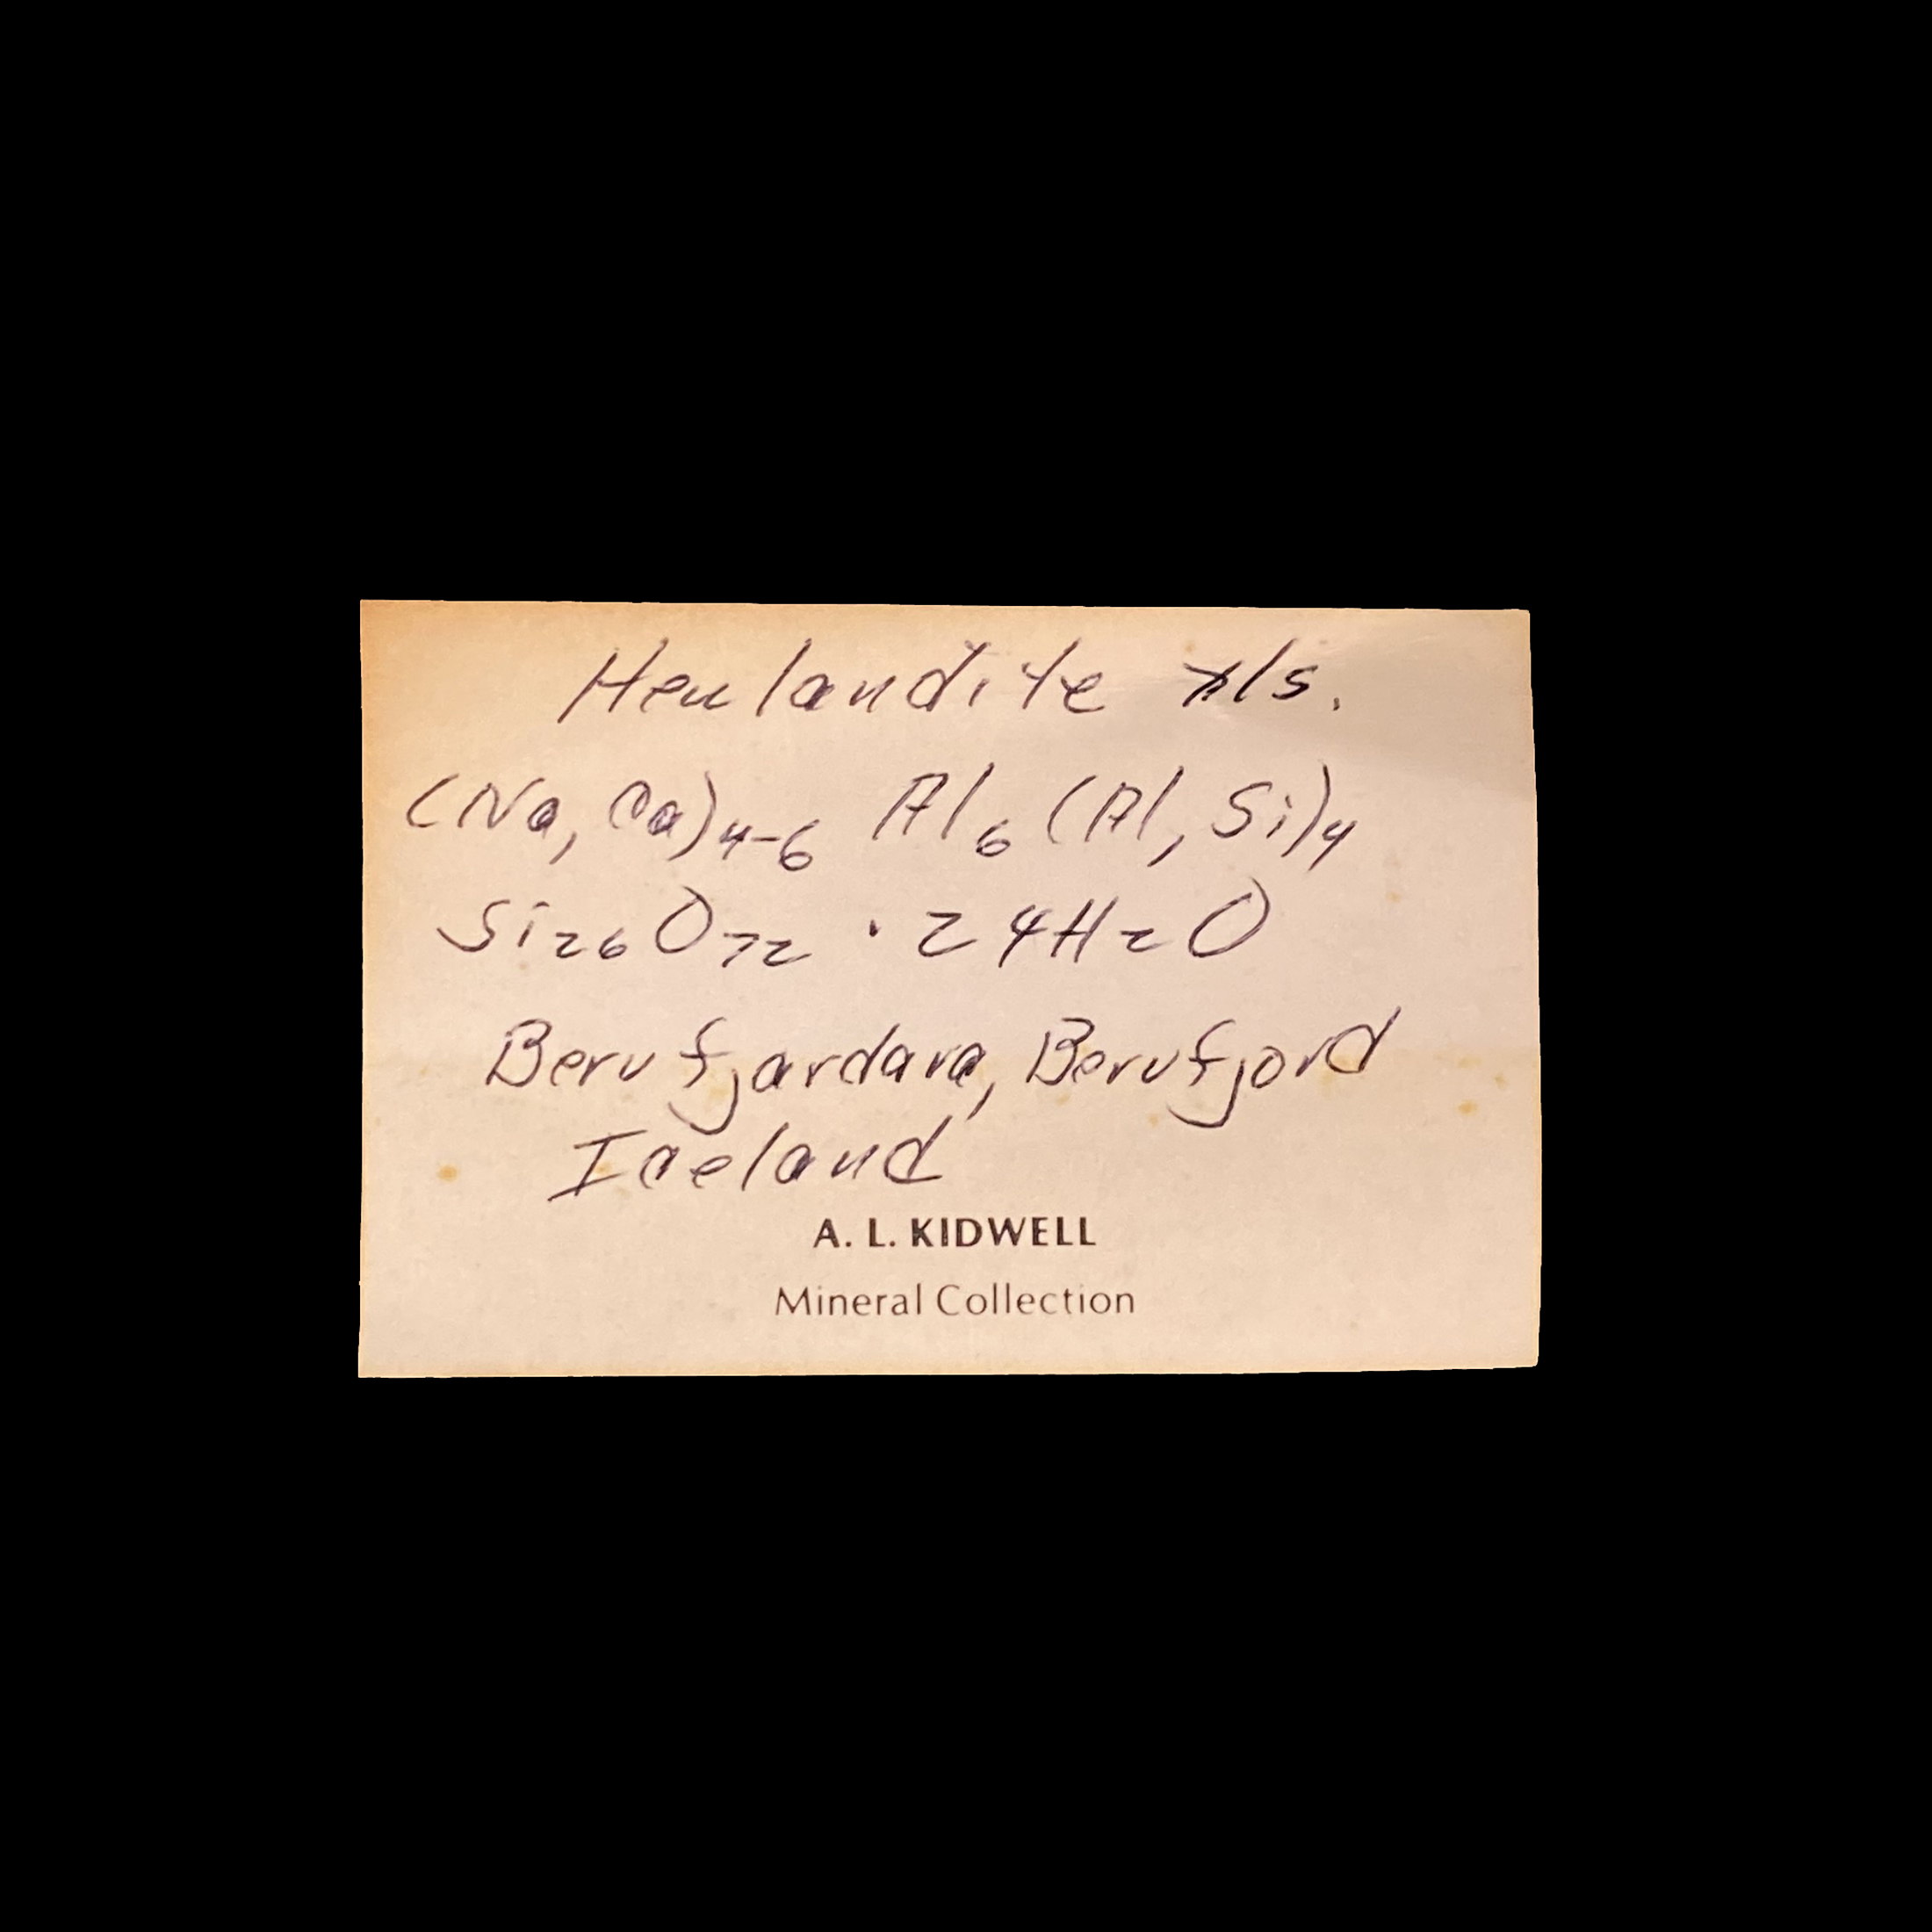 Heulandite xls.
(Na, Ca)₄₋₆ Al₆ (Al, Si)₄
Si₂₆O₇₂ · 24H₂O
Berufjardara, Berufjord
Iceland
A. L. KIDWELL
Mineral Collection